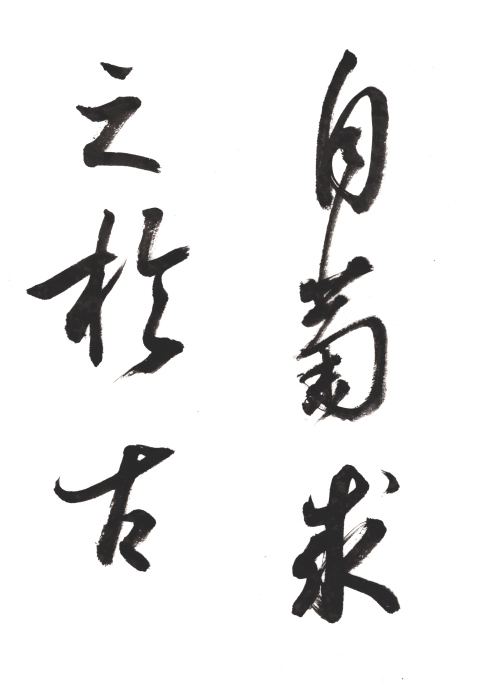 自求
之於古